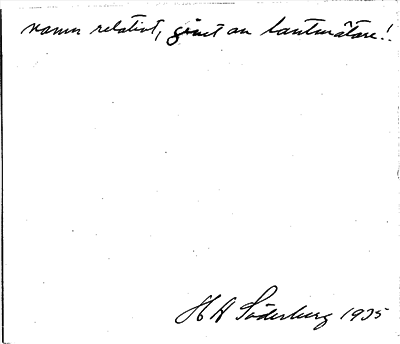 namn relativt, givet av lantmätare!
H A Söderberg 1935